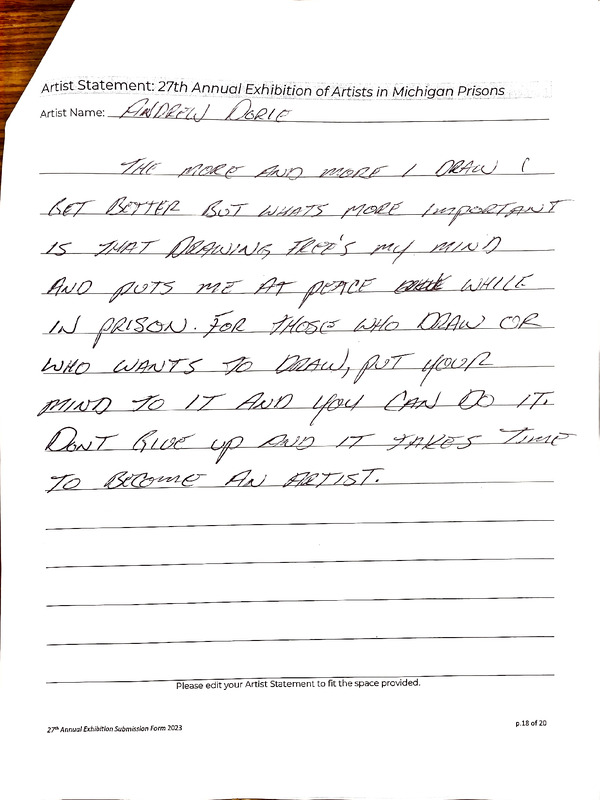 Artist Statement: 27th Annual Exhibition of Artists in Michigan Prisons
Artist Name: ANDREW DORIE
THE MORE AND MORE I DRAW I
GET BETTER BUT WHATS MORE IMPORTANT
IS THAT DRAWING FREE'S MY MIND
AND PUTS ME AT PEACE WHILE
IN PRISON. FOR THOSE WHO DRAW OR
WHO WANTS TO DRAW, PUT YOUR
MIND TO IT AND YOU CAN DO IT.
DONT GIVE UP AND IT TAKES TIME
TO BECOME AN ARTIST.
Please edit your Artist Statement to fit the space provided.
27th Annual Exhibition Submission Form 2023
p.18 of 20